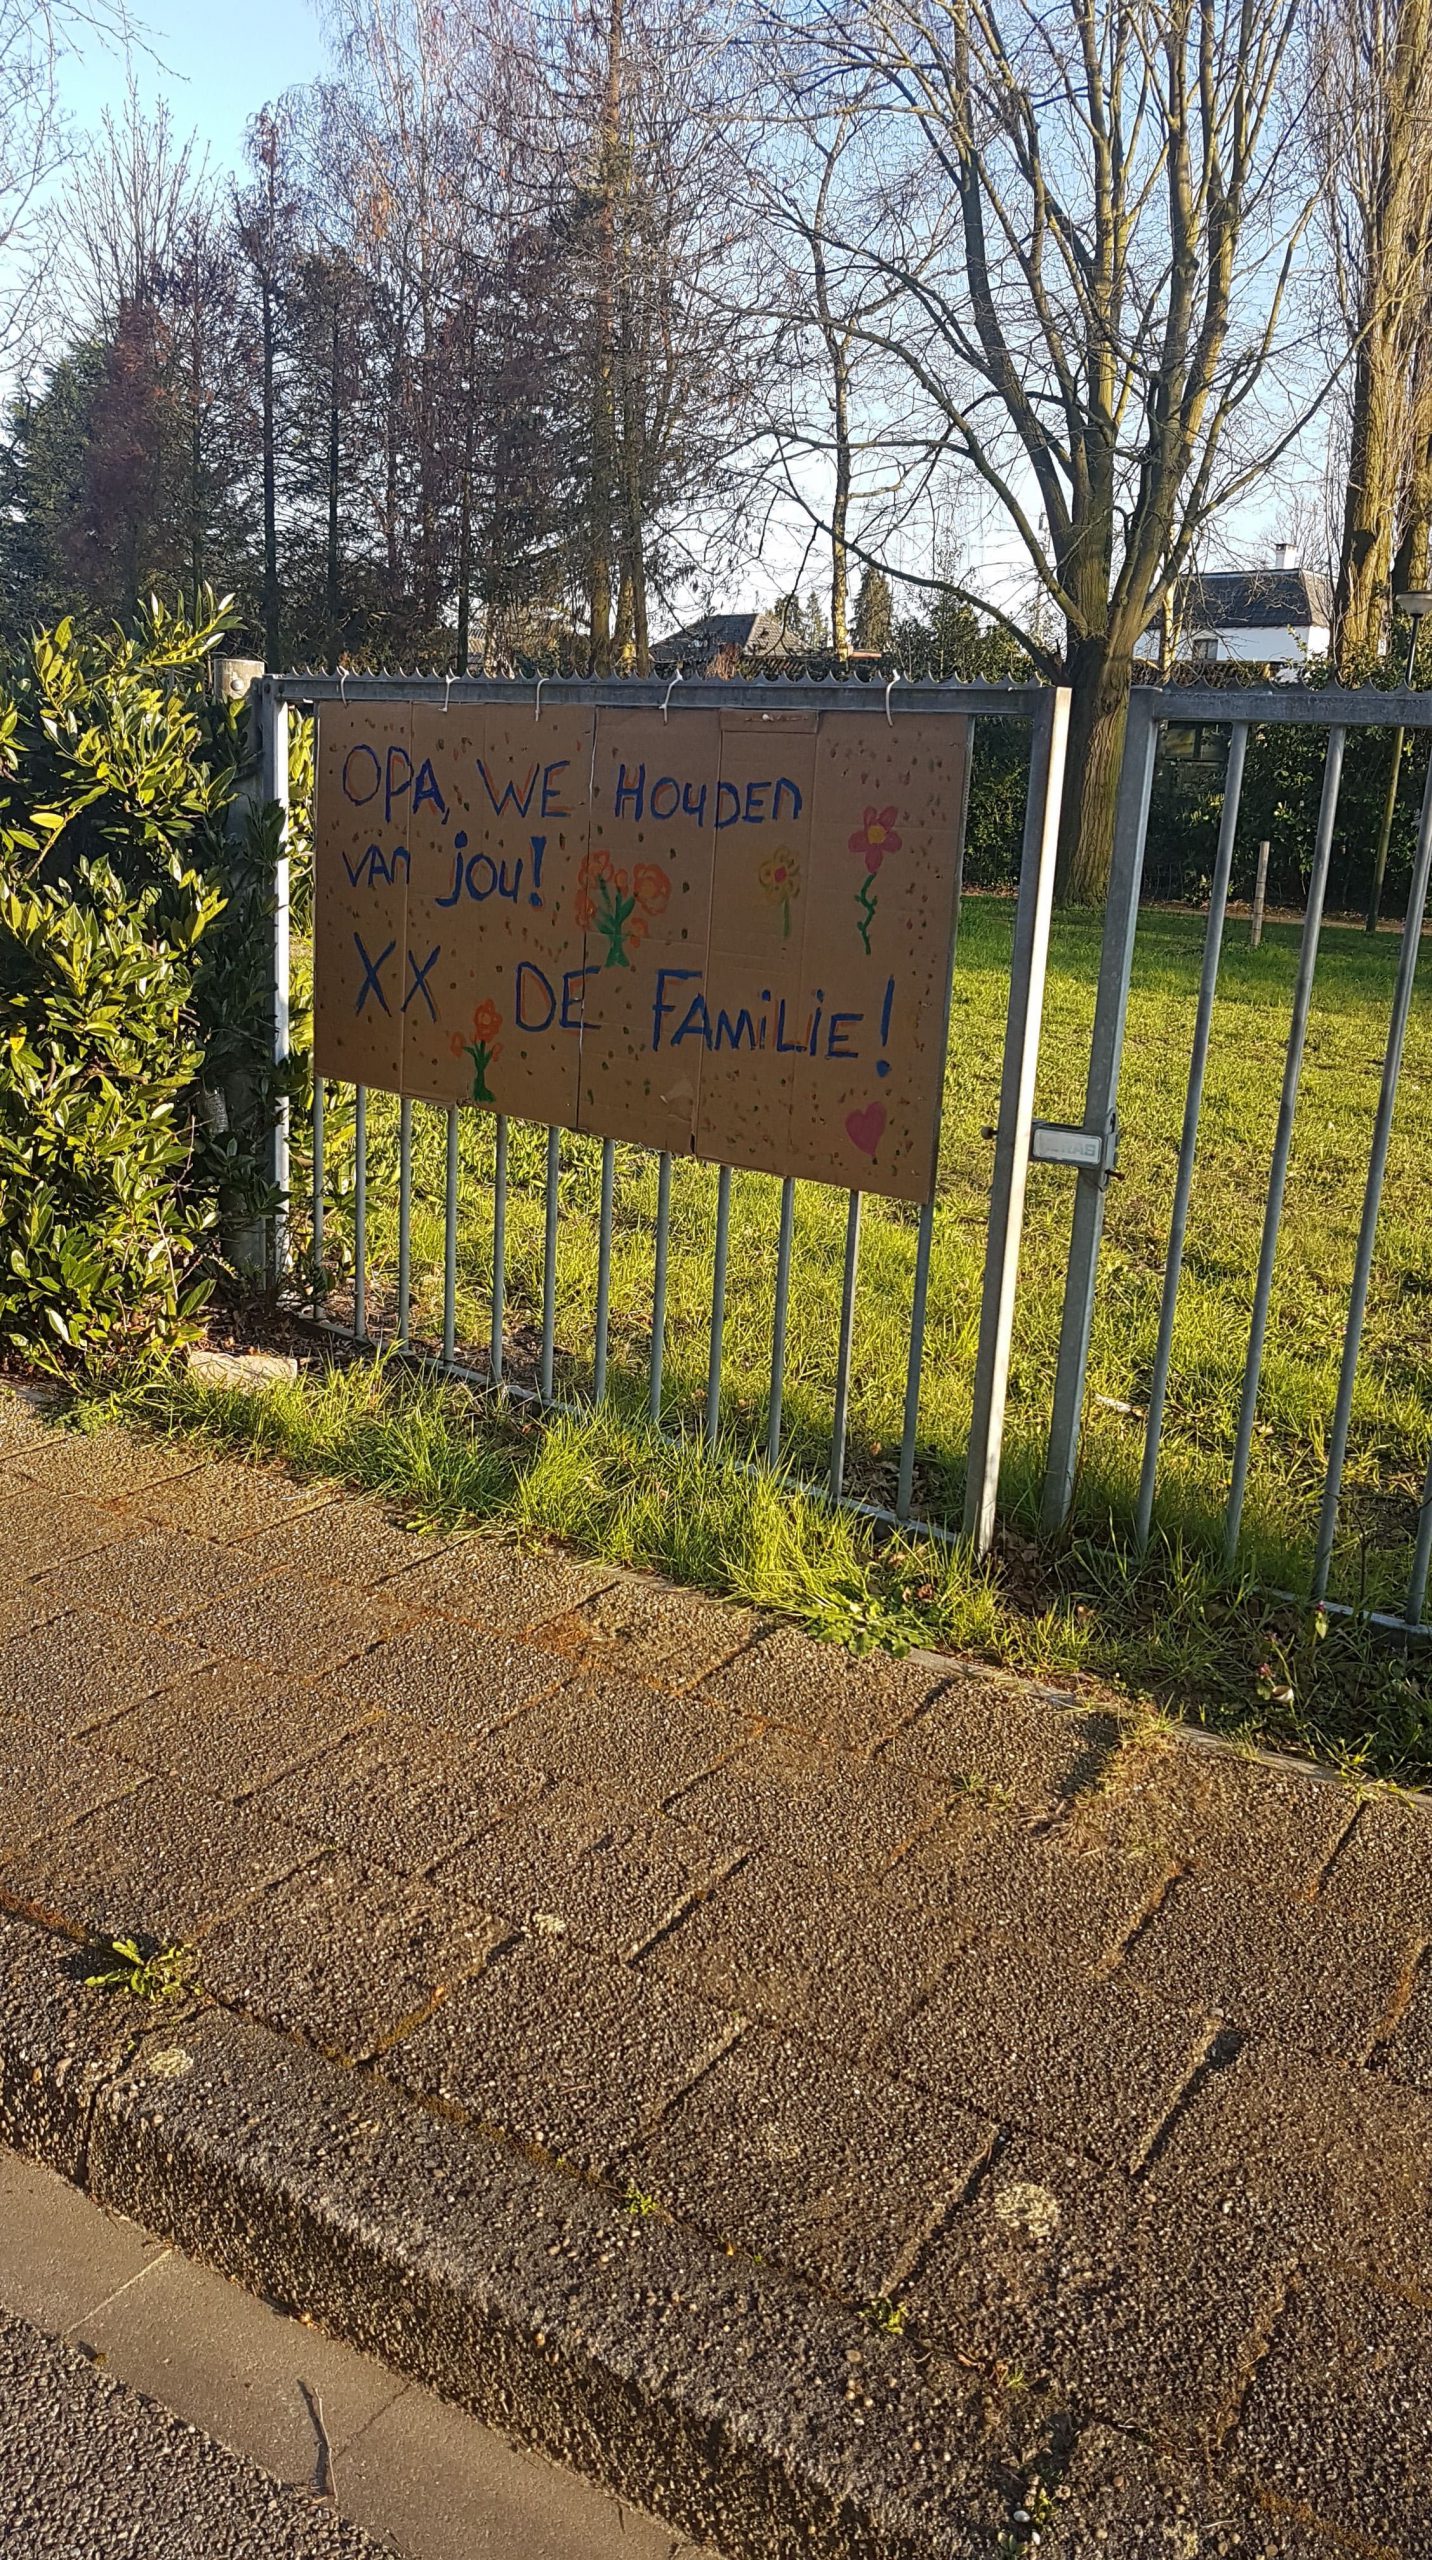 OPA, WE HOUDEN
VAN jou!
XX DE FAMiLiE!